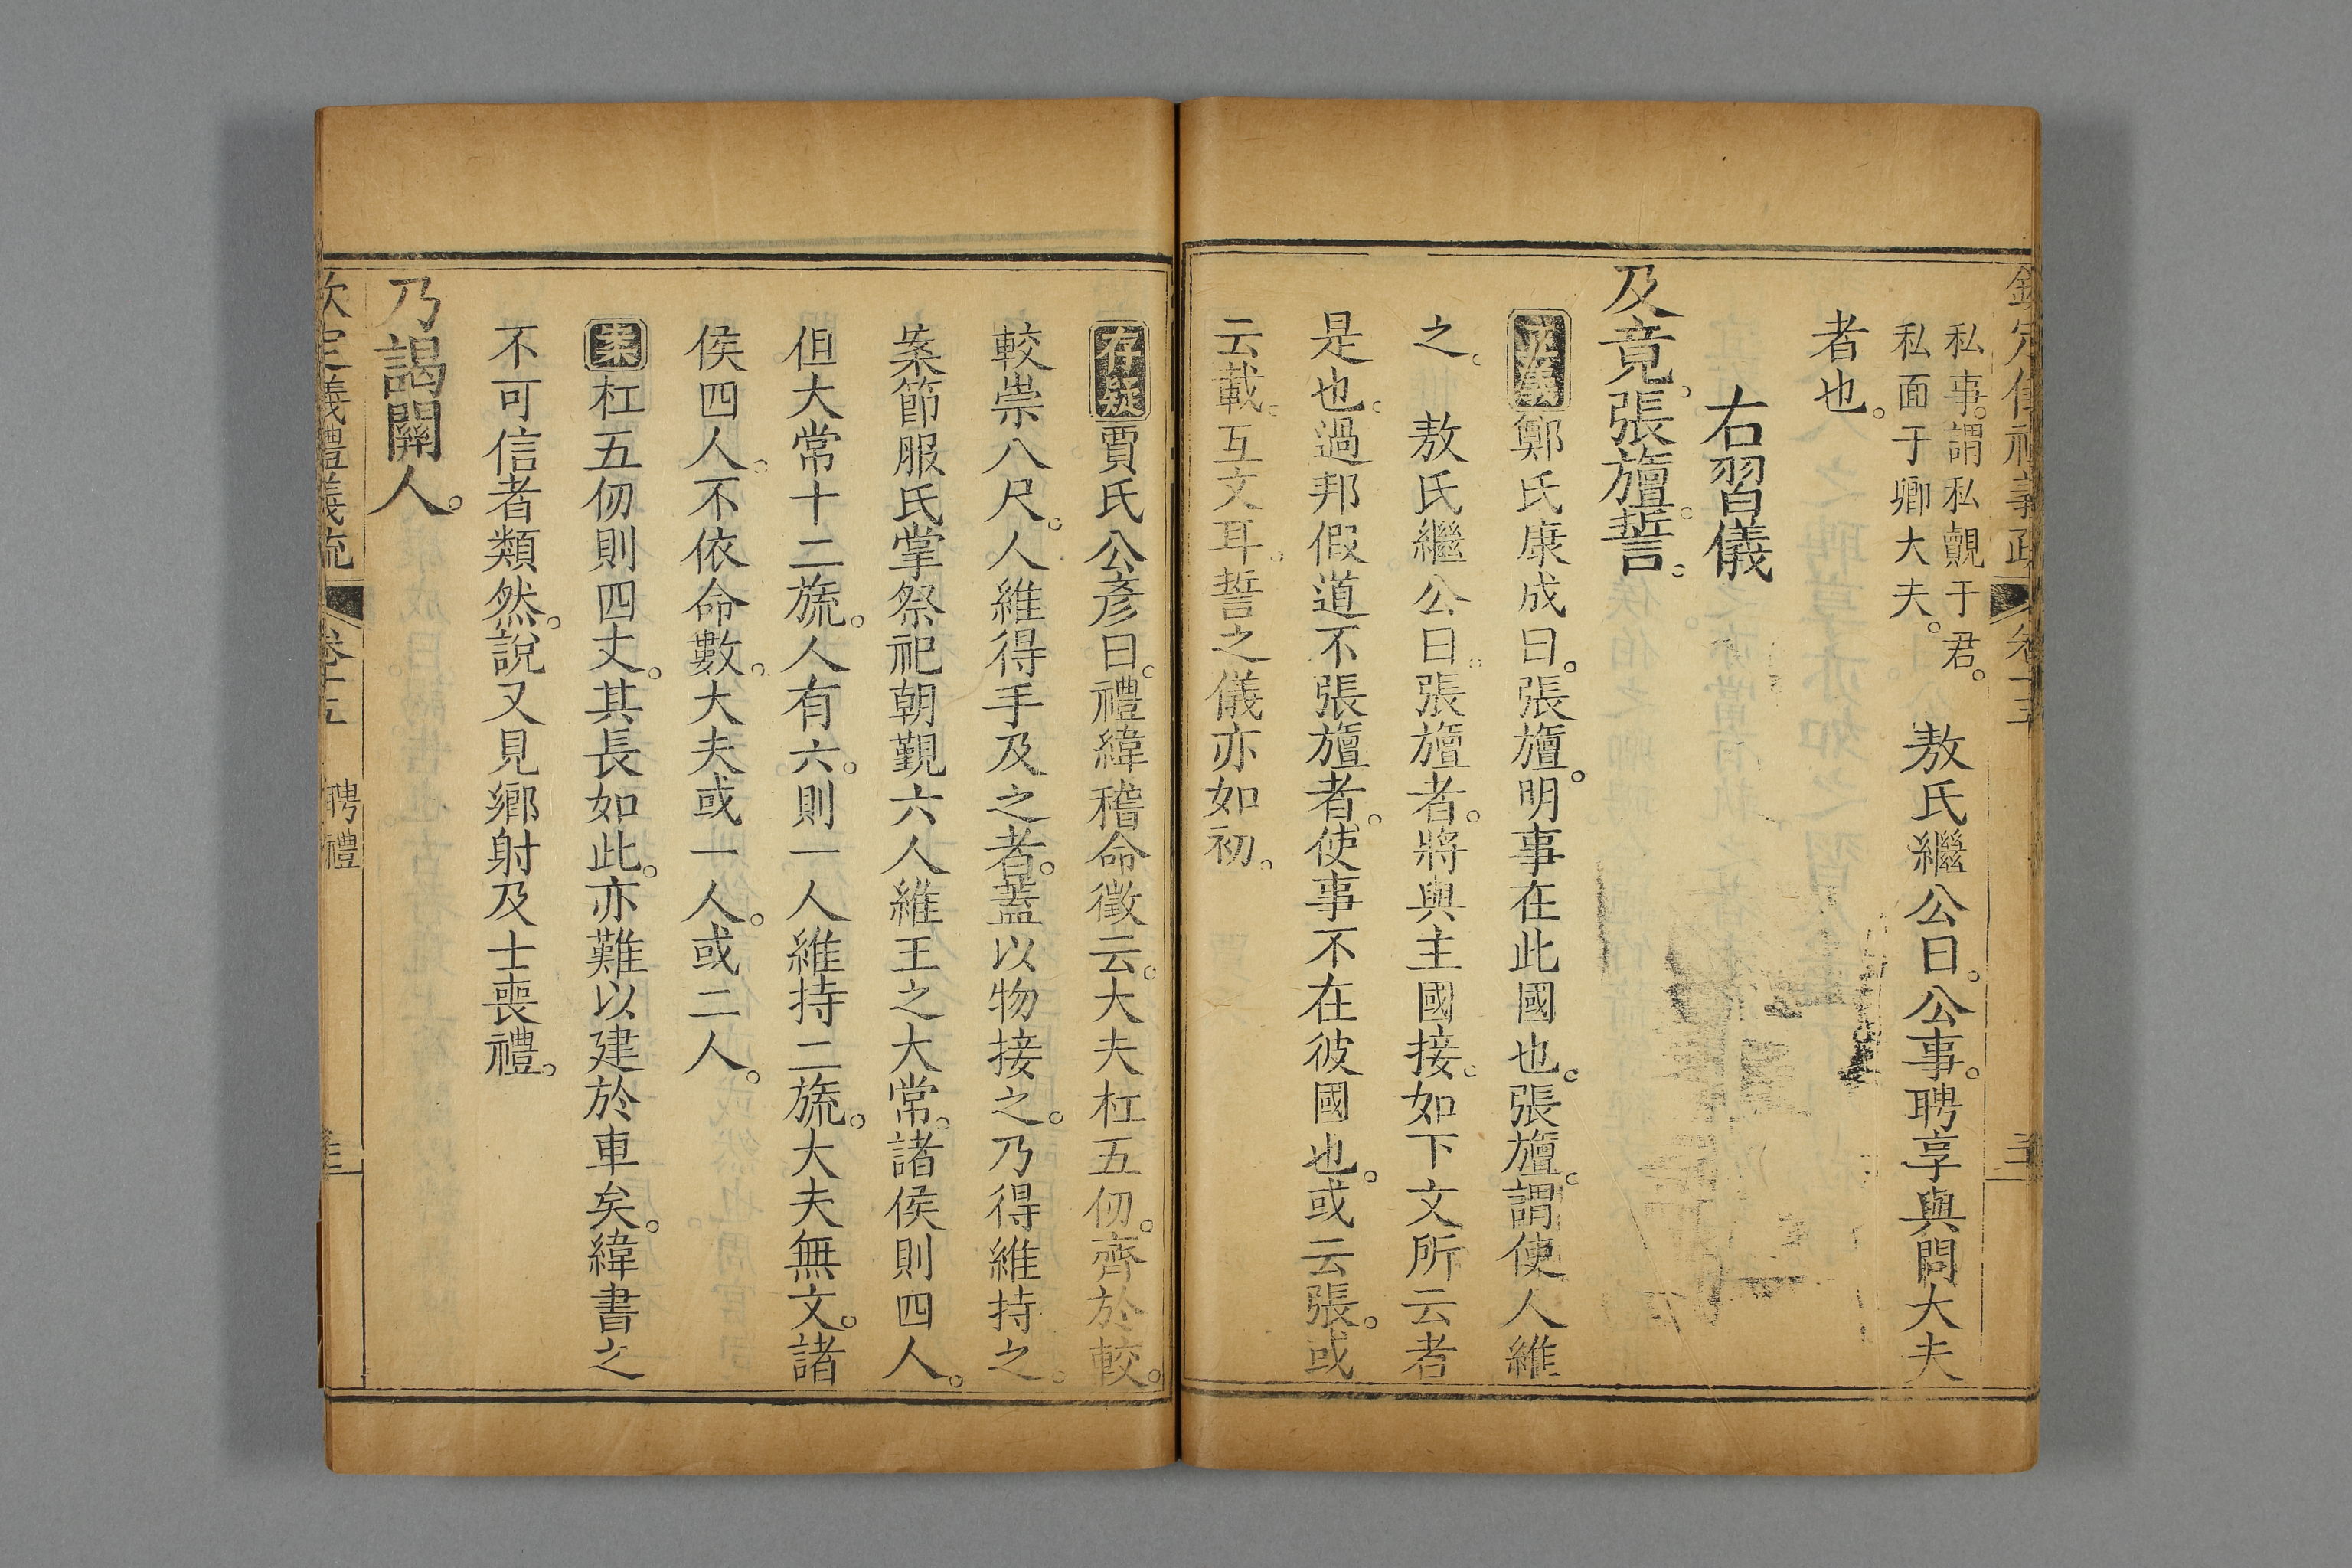 私事。謂私覿于君。
私面于卿大夫。
敖氏繼公曰。公事。聘享與問大夫
者也。
右習儀
及竟。張旜。誓。
正義鄭氏康成曰。張旜。明事在此國也。張旜。謂使人維
之。 敖氏繼公曰。張旜者。將與主國接。如下文所云者
是也。過邦假道不張旜者。使事不在彼國也。或云張。或
云載。互文耳。誓之儀亦如初。
存疑賈氏公彥曰。禮緯稽命徵云。大夫杠五仞。齊於較。
較崇八尺。人維得手及之者。蓋以物接之。乃得維持之。
案節服氏掌祭祀朝覲六人維王之大常。諸侯則四人。
但大常十二旒。人有六。則一人維持二旒。大夫無文。諸
侯四人。不依命數。大夫或一人。或二人。
案杠五仞則四丈。其長如此。亦難以建於車矣。緯書之
不可信者類然。說又見鄉射及士喪禮。
乃謁關人。
欽定儀禮義疏 卷十五 聘禮